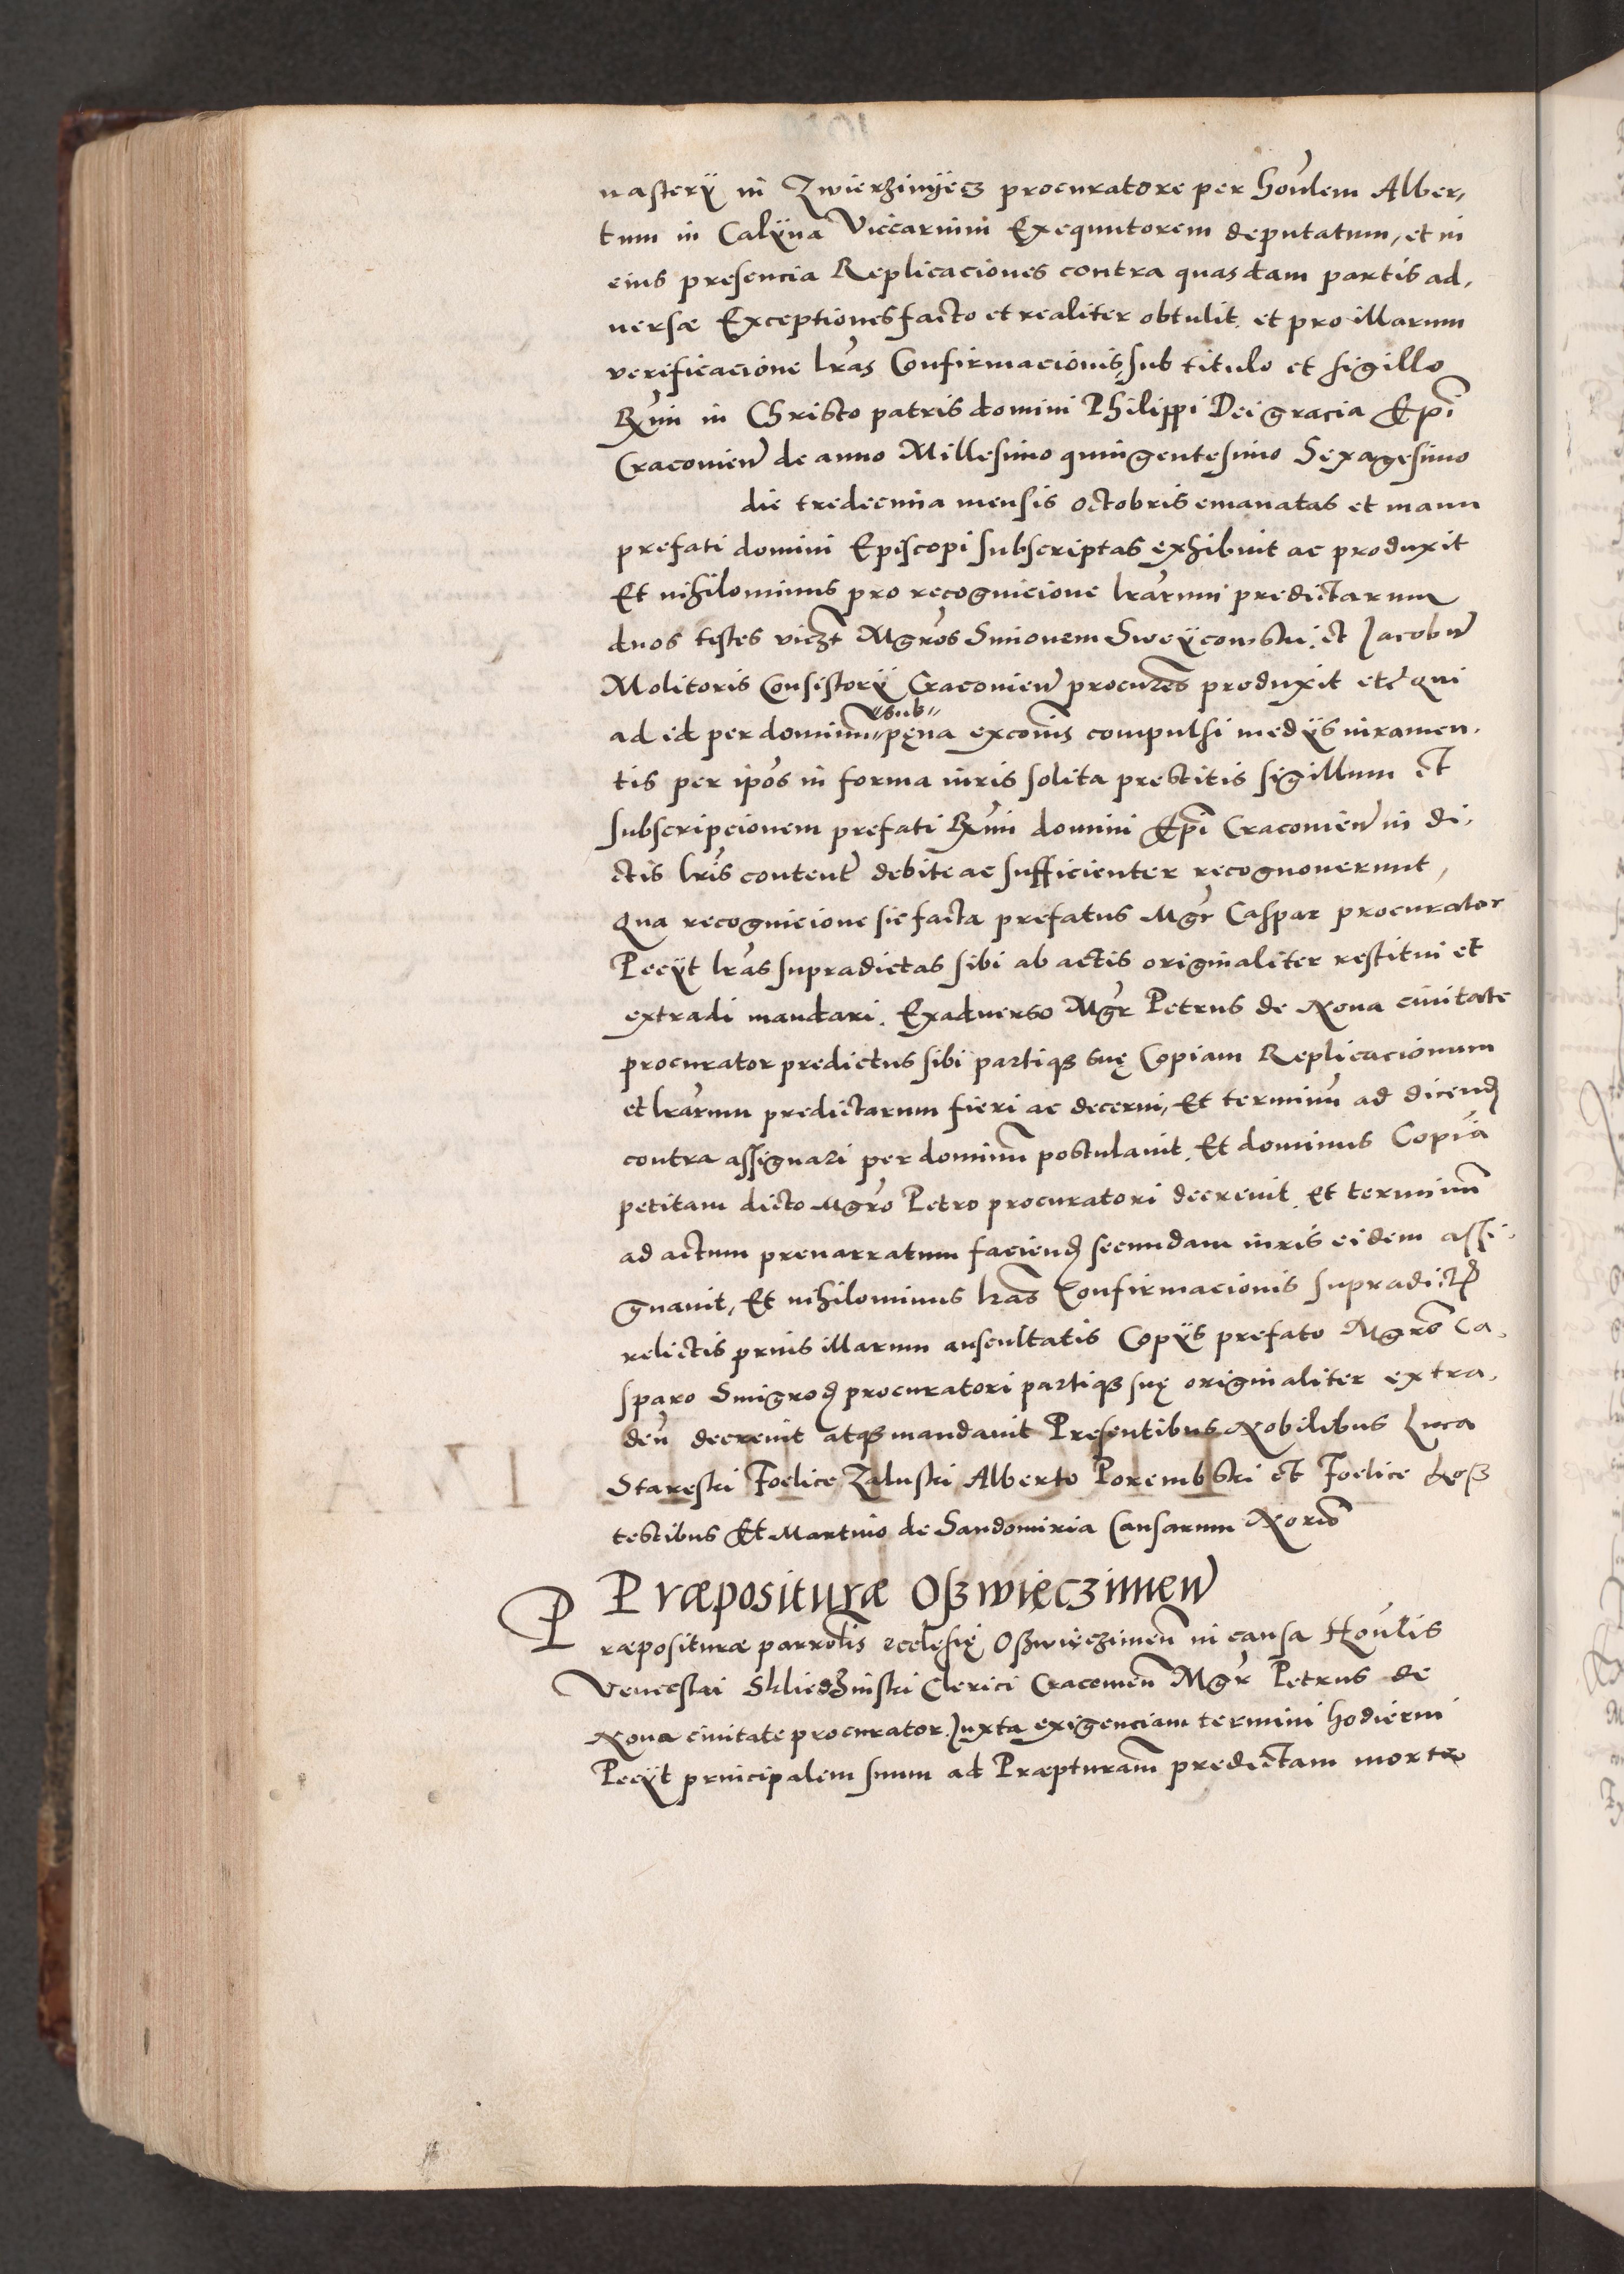 nasterÿ in Zwierzinÿecz procuratore per honlem Alber,
tum in Calÿna Viccarium Exequutorem deputatum, et in
eius presencia Replicaciones contra quasdam partis ad,
uersæ Exceptiones facto et realiter obtulit. et pro illarum
verificacione lras Confirmacionis, sub titulo et sigillo
Rmi in Christo patris domini Philippi Dei gracia Epi
Cracouien de anno Millesimo quingentesimo Sexagesimo
die tredecima mensis octobris emanatas et manu
prefati domini Episcopi subscriptas exhibuit ac produxit
Et nihilominus pro recognicione lrarum predictarum
duos testes viczt Mgros Simonem Sweÿcowski. et Jacobu
Molitoris Consistorÿ Cracouien procures produxit etc qui
ad id per dominu "sub" pęna excois compulsi medÿs iuramen,
tis per ipos in forma iuris solita prestitis sigillum et
subscripcionem prefati Rmi domini Epi Cracouien in di,
ctis lris content debite ac sufficienter recognouerunt,
Qua recognicione sic facta prefatus Mgr Caspar procurator
Peeÿt lras supradictas sibi ab actis originaliter restitui et
extradi mandari. Exaduerso Mgr Petrus de Noua ciuitate
procurator predictus sibi partiqȝ suę Copiam Replicacionum
et lrarum predictarum fieri ac decerni, Et terminu ad dicend
contra assignari per dominu postulauit. Et dominus Copia
petitam dicto Mgro Petro procuratori decreuit. Et terminu
ad actum prenarratum faciend secundam iuris eidem assi,
gnauit, Et nihilominus lras Confirmacionis supradict
relictis prius illarum auscultatis Copÿs prefato Mgro Ca,
sparo Smigrod procuratori partiqȝ suę originaliter extra,
den decreuit atqȝ mandauit Presentibus Nobilibus Luca
Stareski Foelice Zaluski Alberto Porembski et Foelice
testibus Et Martino de Sandomiria Causarum Norio
Præpositura Oßwięczimen
Præposituræ parrolis ecclesię Oßwięczimen in causa Honlis
Venceslai Skliedzinski Clerici Cracouien Mgr Petrus de
Noua ciuitate procurator. Juxta exigenciam termini hodierni
Peeÿt principalem suum ad Præpturam predictam morte